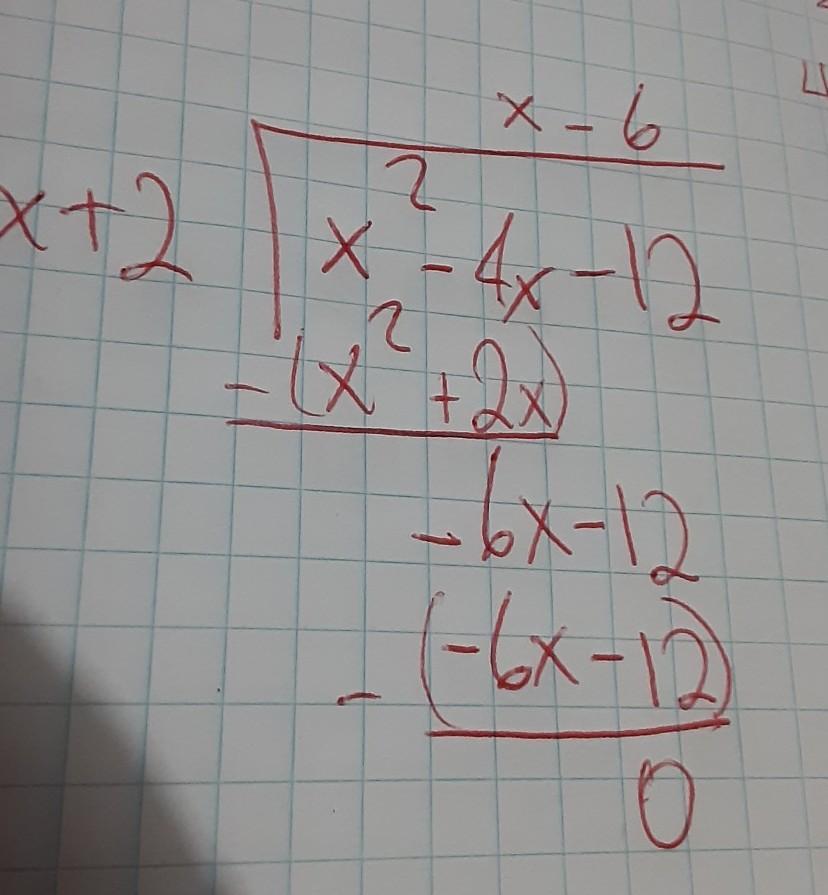 x - 6
x + 2 x² - 4x - 12
- (x² + 2x)
- 6x - 12
- (-6x - 12)
0